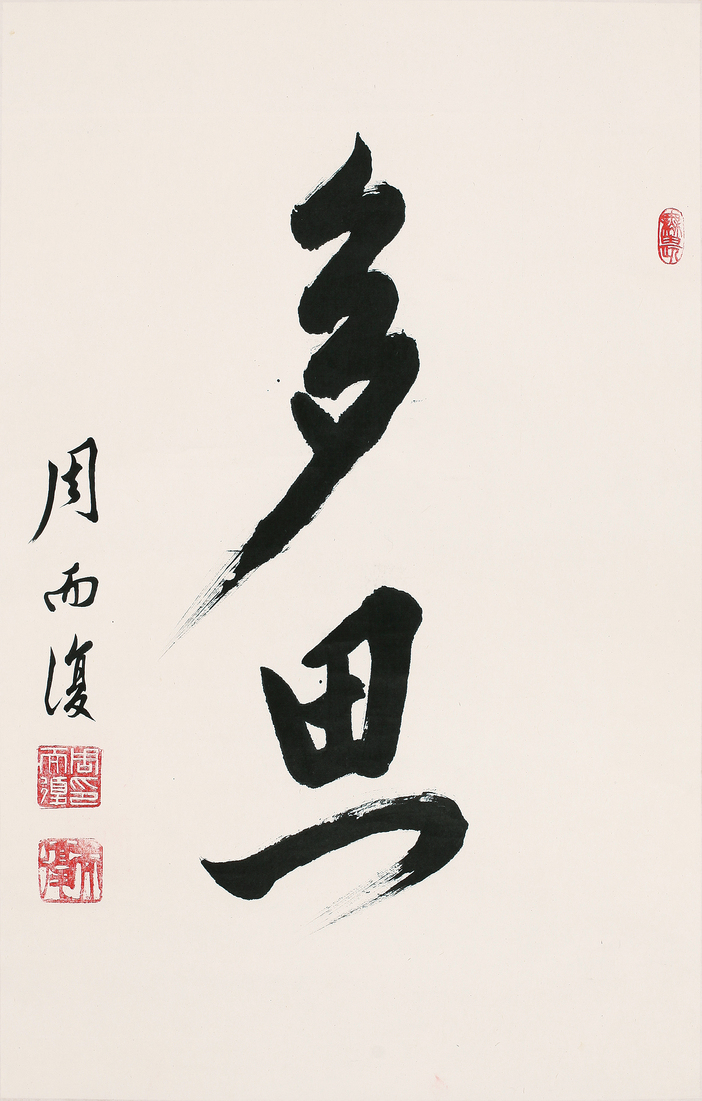 多思
周而復
周印而復